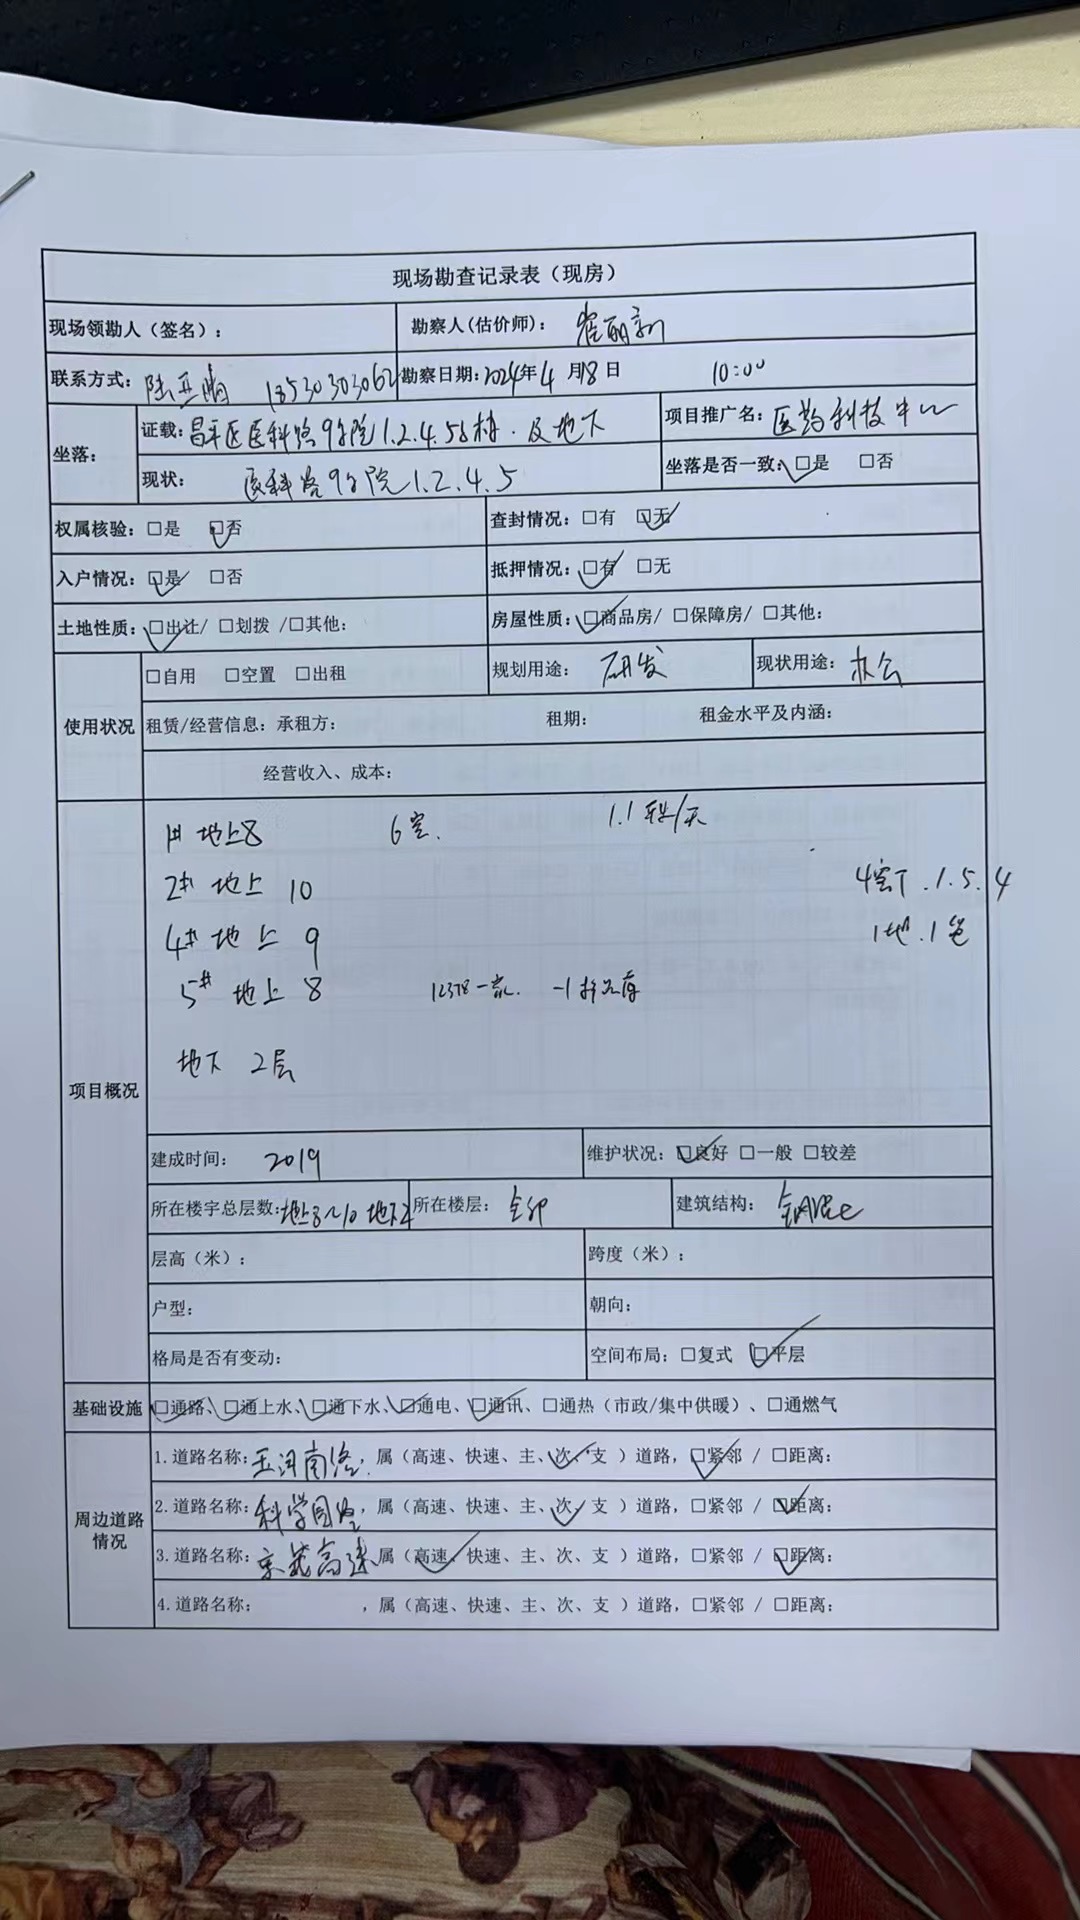 现场勘查记录表（现房）
现场领勘人（签名）： 勘察人(估价师)： 崔丽新
联系方式： 18530303062 勘察日期：2024年4月18日 10:00
坐落： 证载：昌平区医科路9号院1.2.4.5号楼.及地下 项目推广名：医药科技中心
现状： 医科路9号院1.2.4.5 坐落是否一致：☑是 □否
权属核验：□是 ☑否 查封情况：□有 ☑无
入户情况：☑是 □否 抵押情况：☑有 □无
土地性质：☑出让/ □划拨 /□其他： 房屋性质：☑商品房/ □保障房/ □其他：
使用状况 □自用 □空置 □出租 规划用途： 研发 现状用途：办公
租赁/经营信息：承租方： 租期： 租金水平及内涵：
经营收入、成本：
项目概况
1# 地上8 6空. 1.1 /天
2# 地上 10 4空下.1.5.4
4# 地上 9 1地.1
5# 地上 8
地下 2层
建成时间： 2019 维护状况：☑良好 □一般 □较差
所在楼宇总层数：地上8~10 地下2 所在楼层： 全部 建筑结构： 钢混
层高（米）： 跨度（米）：
户型： 朝向：
格局是否有变动： 空间布局：□复式 ☑平层
基础设施 ☑通路、☑通上水、☑通下水、☑通电、☑通讯、□通热（市政/集中供暖）、□通燃气
周边道路情况
1.道路名称：玉河南路，属（高速、快速、主、次✓、支 ）道路，☑紧邻 / □距离：
2.道路名称：科学园路，属（高速、快速、主、次✓、支 ）道路，□紧邻 / ☑距离：
3.道路名称：京藏高速，属（高速✓、快速、主、次、支 ）道路，□紧邻 / ☑距离：
4.道路名称： ，属（高速、快速、主、次、支 ）道路，□紧邻 / □距离：